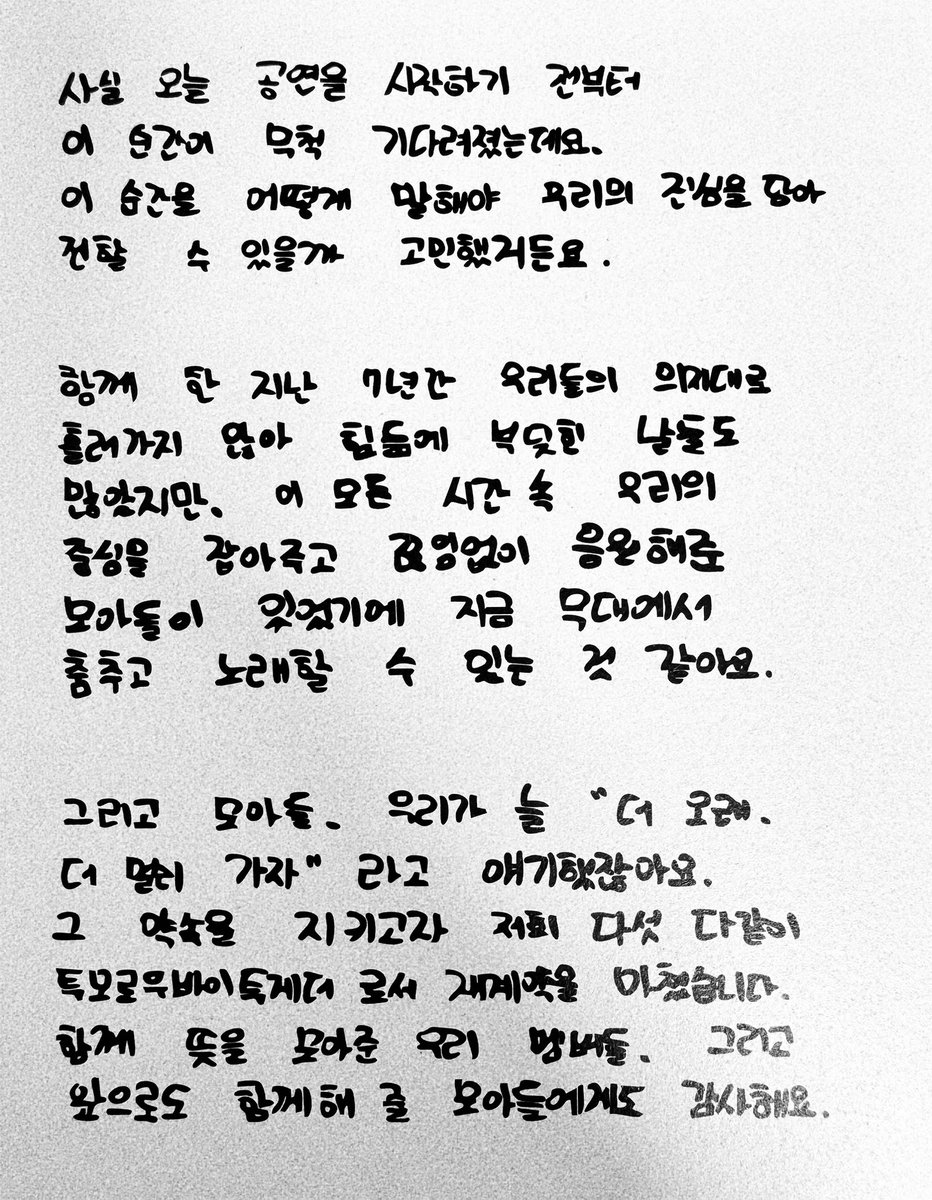 사실 오늘 공연을 시작하기 전부터
이 순간이 무척 기다려졌는데요.
이 순간을 어떻게 말해야 우리의 진심을 담아
전할 수 있을까 고민했거든요.
함께 한 지난 7년간 우리들의 의지대로
흘러가지 않아 힘듦에 부딪힌 날들도
많았지만, 이 모든 시간 속 우리의
중심을 잡아주고 끊임없이 응원해준
모아들이 있었기에 지금 무대에서
춤추고 노래할 수 있는 것 같아요.
그리고 모아들. 우리가 늘 "더 오래.
더 멀리 가자" 라고 얘기했잖아요.
그 약속을 지키고자 저희 다섯 다같이
투모로우바이투게더 로서 재계약을 마쳤습니다.
함께 뜻을 모아준 우리 멤버들. 그리고
앞으로도 함께해 줄 모아들에게도 감사해요.